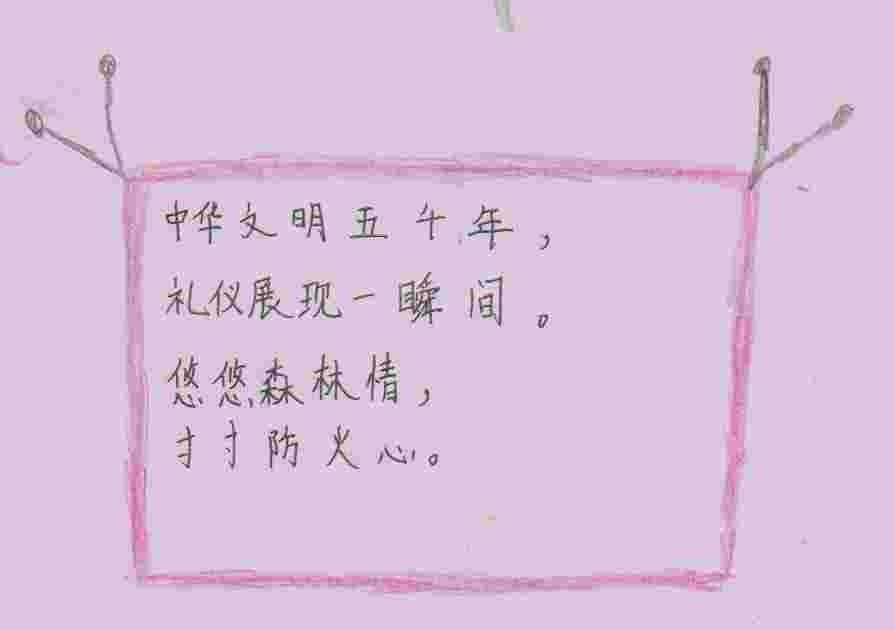 中华文明五千年，
礼仪展现一瞬间。
悠悠森林情，
寸寸防火心。